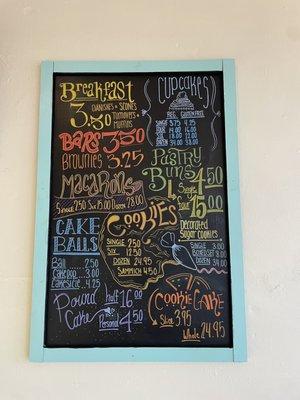 Breakfast
3.50
DANISHES & SCONES
TURNOVERS &
MUFFINS
BARS 3.50
Brownies 3.25
MACARONS
SINGLE 2.50 SIX 15.00 DOZEN 28.00
CAKE
BALLS
Ball 2.50
Cake Pop 3.00
Cakesicle 4.25
Pound
Cake
half 16.00
Personal 4.50
CUPCAKES
REG. GLUTEN FREE
SINGLE 3.75 4.25
FOUR 14.00 16.00
SIX 18.00
DOZEN 34.00 38.00
PASTRY
BUNS
Single 4.50
Four 15.00
COOKIES
SINGLE 2.50
SIX
DOZEN 24.95
SAMMICH 4.50
Decorated
Sugar Cookies
SINGLE 3.00
DOZEN 34.00
COOKIE CAKE
Slice 3.95
Whole 24.95